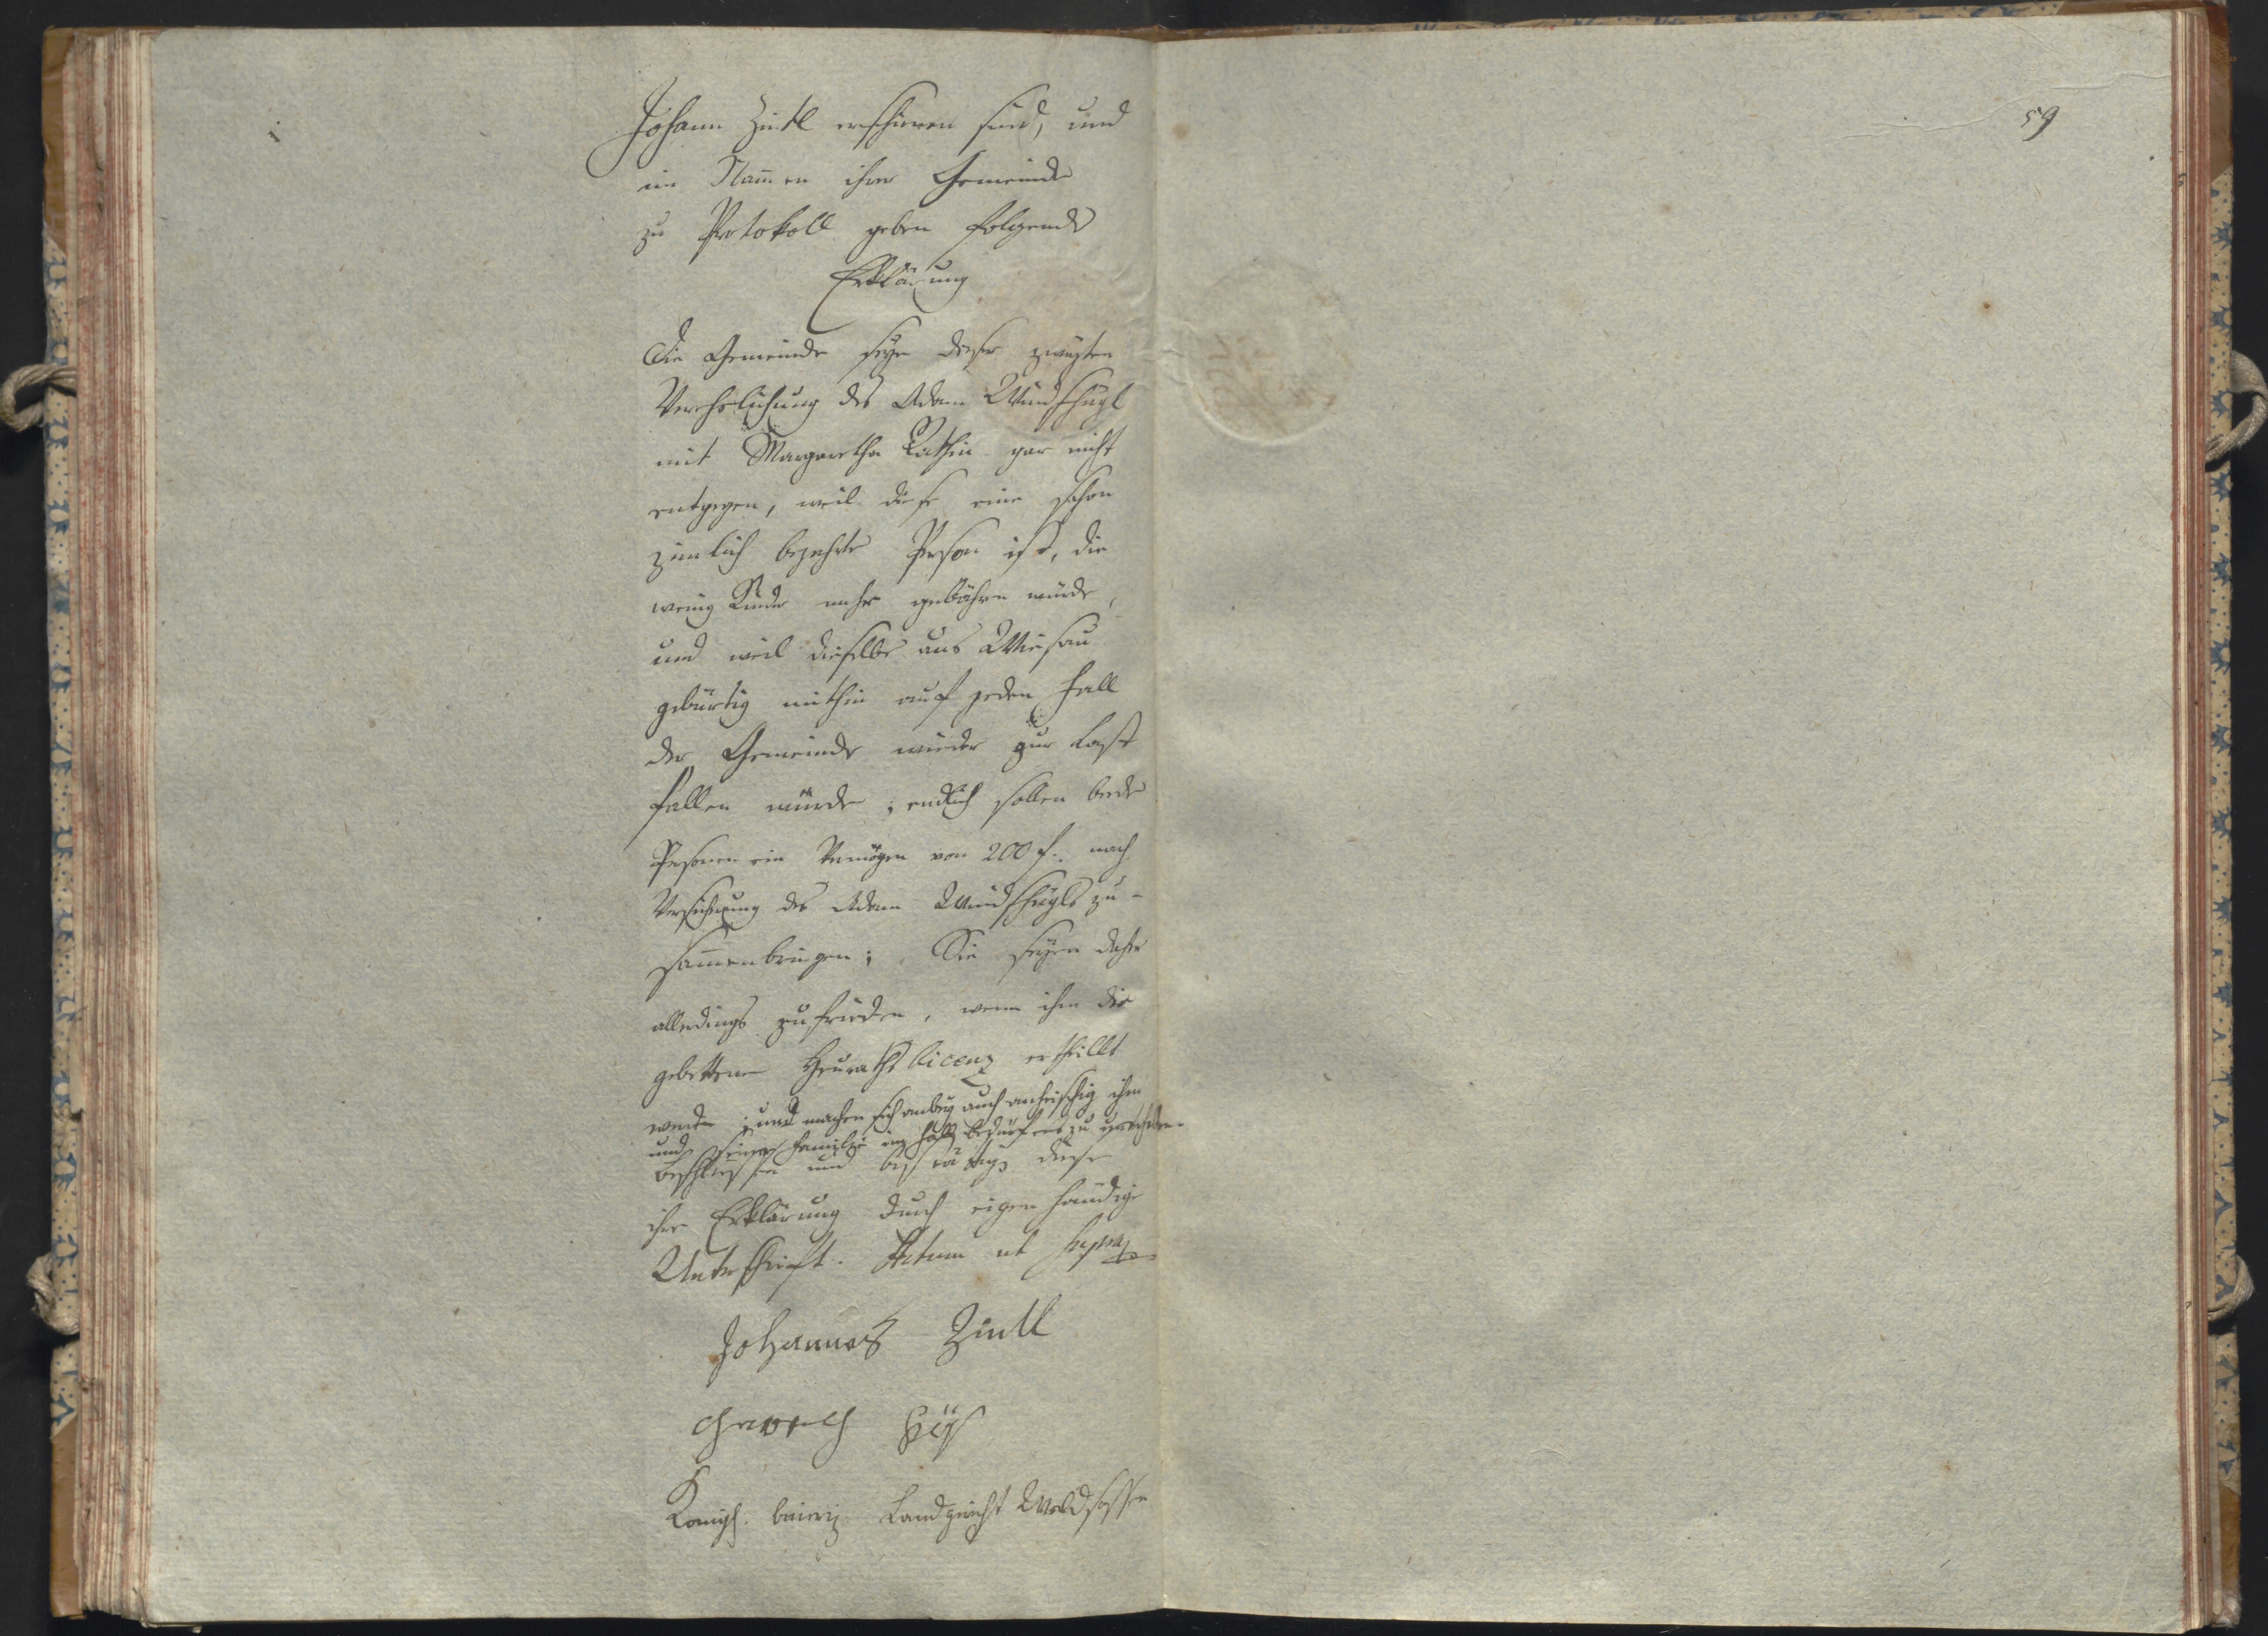 59
Johann Zintl erschienen sind, und
im Nam̄en ihrer Gemeinde
zu Protokoll geben folgende
Erklärung
Die Gemeinde seye dieser zweyten
Verehelichung des Adam Windschügl
mit Margaretha Rathin gar nicht
entgegen, weil diese eine schon
zimlich bejahrte Person ist, die
wenig Kinder mehr gebähren würde,
und weil dieselbe aus Wiesau
gebürtig mithin auf jeden Fall
der Gemeinde wieder zur Last
fallen würde; endlich sollen beede
Personen ein Vermögen von 200 f. nach
Versicherung des Adam Windschügls zu-
sam̄enbringen; Sie seyen daher
allerdings zufrieden, wenn ihm die
gebettene Heuraths licenz ertheillt
werde; und machen sich anbey auch anheischig ihm
und seiner Familie im Fall Bedürfens zu unterhalten.
beschliessen und bestättigen diese
ihre Erklärung durch eigenhändige
Unterschrift. Actum ut supra
Johannes Zintl
Königl. baieris. Landgericht Waldsassen